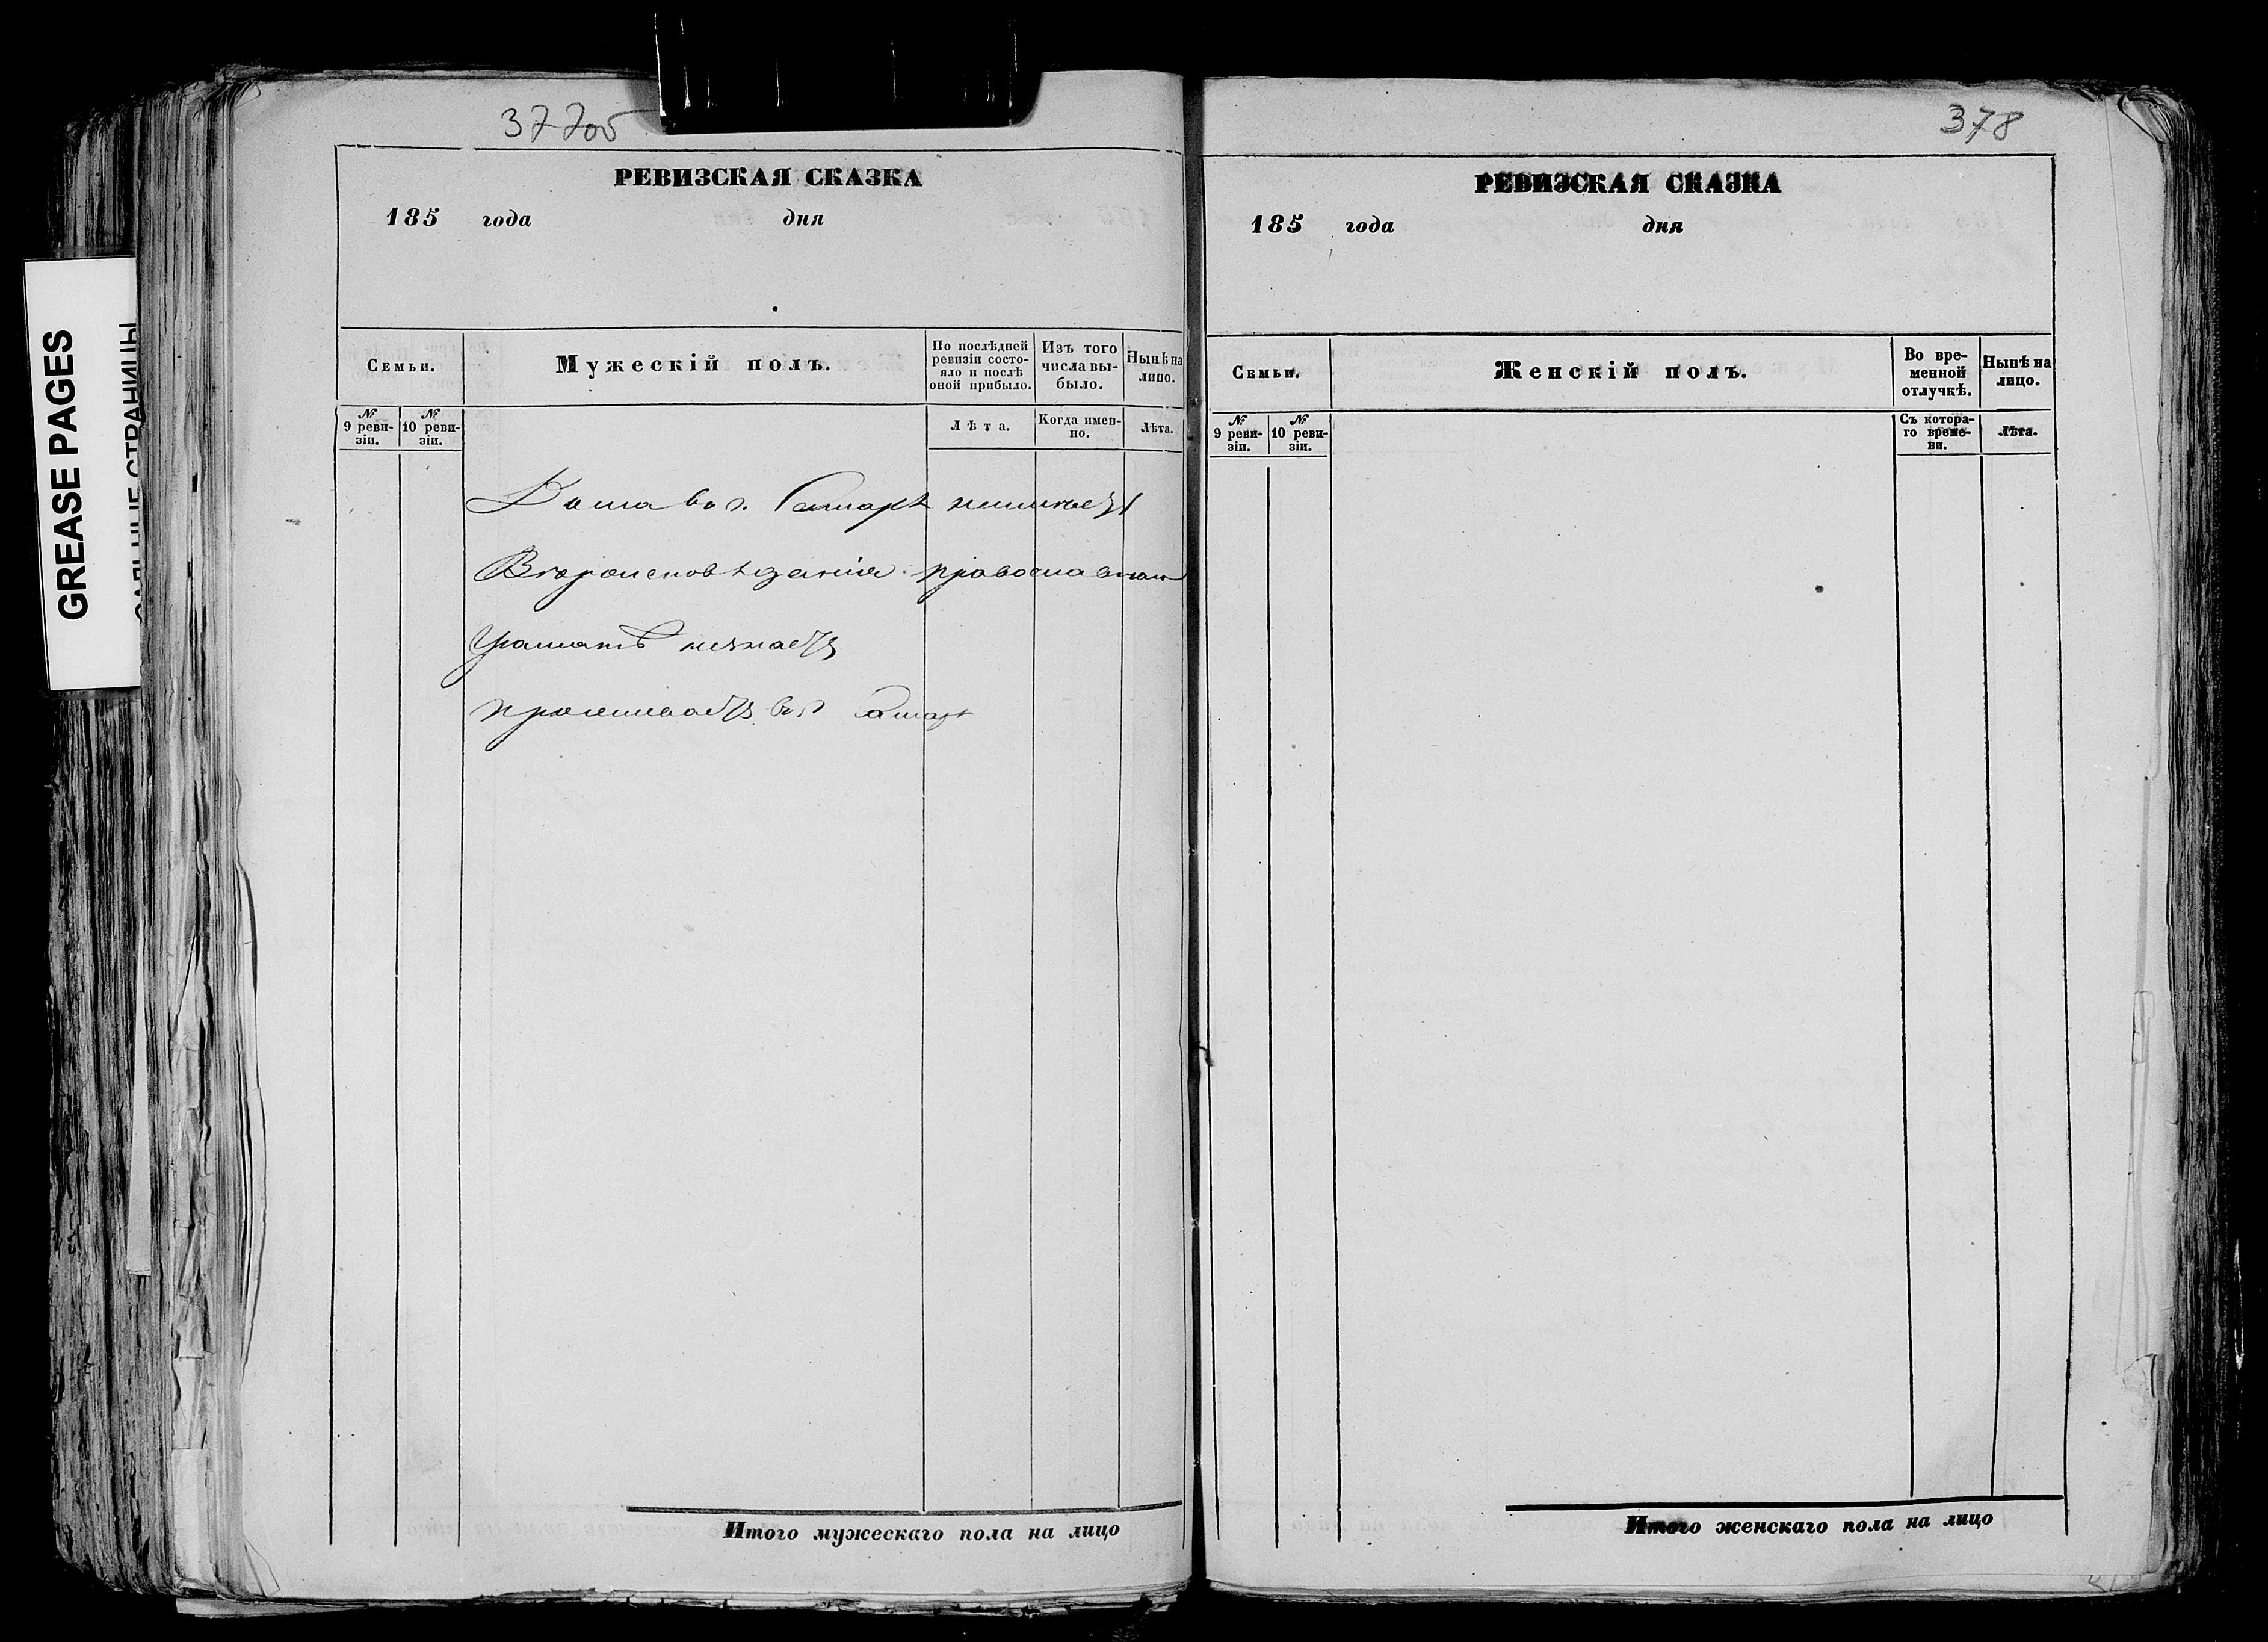 GREASE PAGES
377об
РЕВИЗСКАЯ СКАЗКА
185 года дня
Семьи.
Мужескій полъ.
По послѣдней ревизіи состояло и послѣ оной прибыло.
Изъ того числа выбыло.
Нынѣ на лицо.
№ 9 ревизіи.
№ 10 ревизіи.
Лѣта.
Когда именно.
Лѣта.
Дома во г. Самарѣ неимѣетъ
Вѣроисповѣданія православнаго
Грамотѣ незнаетъ
проживаетъ во г Самарѣ
Итого мужескаго пола на лицо
378
РЕВИЗСКАЯ СКАЗКА
185 года дня
Семьи.
Женскій полъ.
Во временной отлучкѣ.
Нынѣ на лицо.
№ 9 ревизіи.
№ 10 ревизіи.
Съ котораго времени.
Лѣта.
Итого женскаго пола на лицо